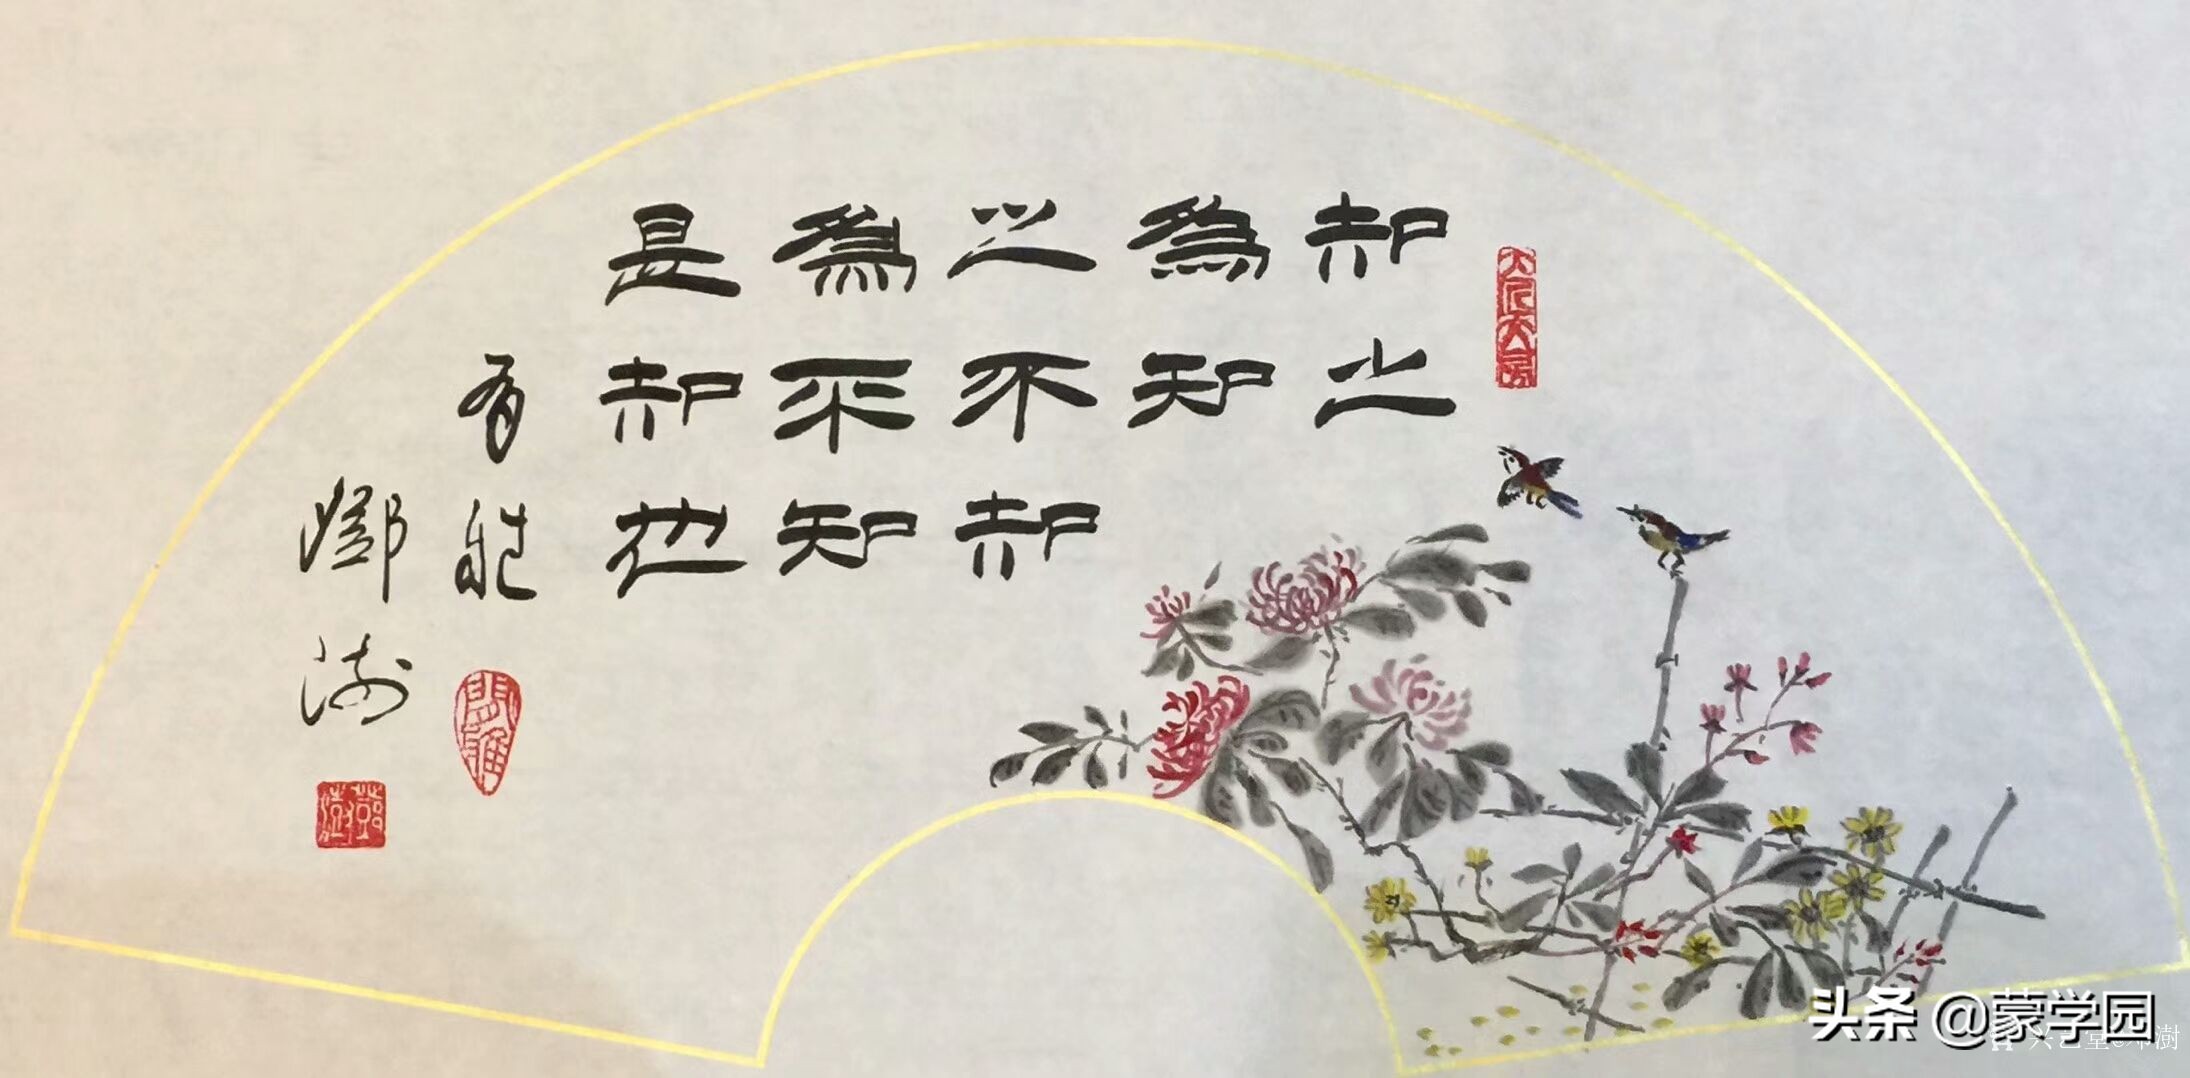 知之
為知
之不知
為不知
是知也
鄧澍
头条 @蒙学园